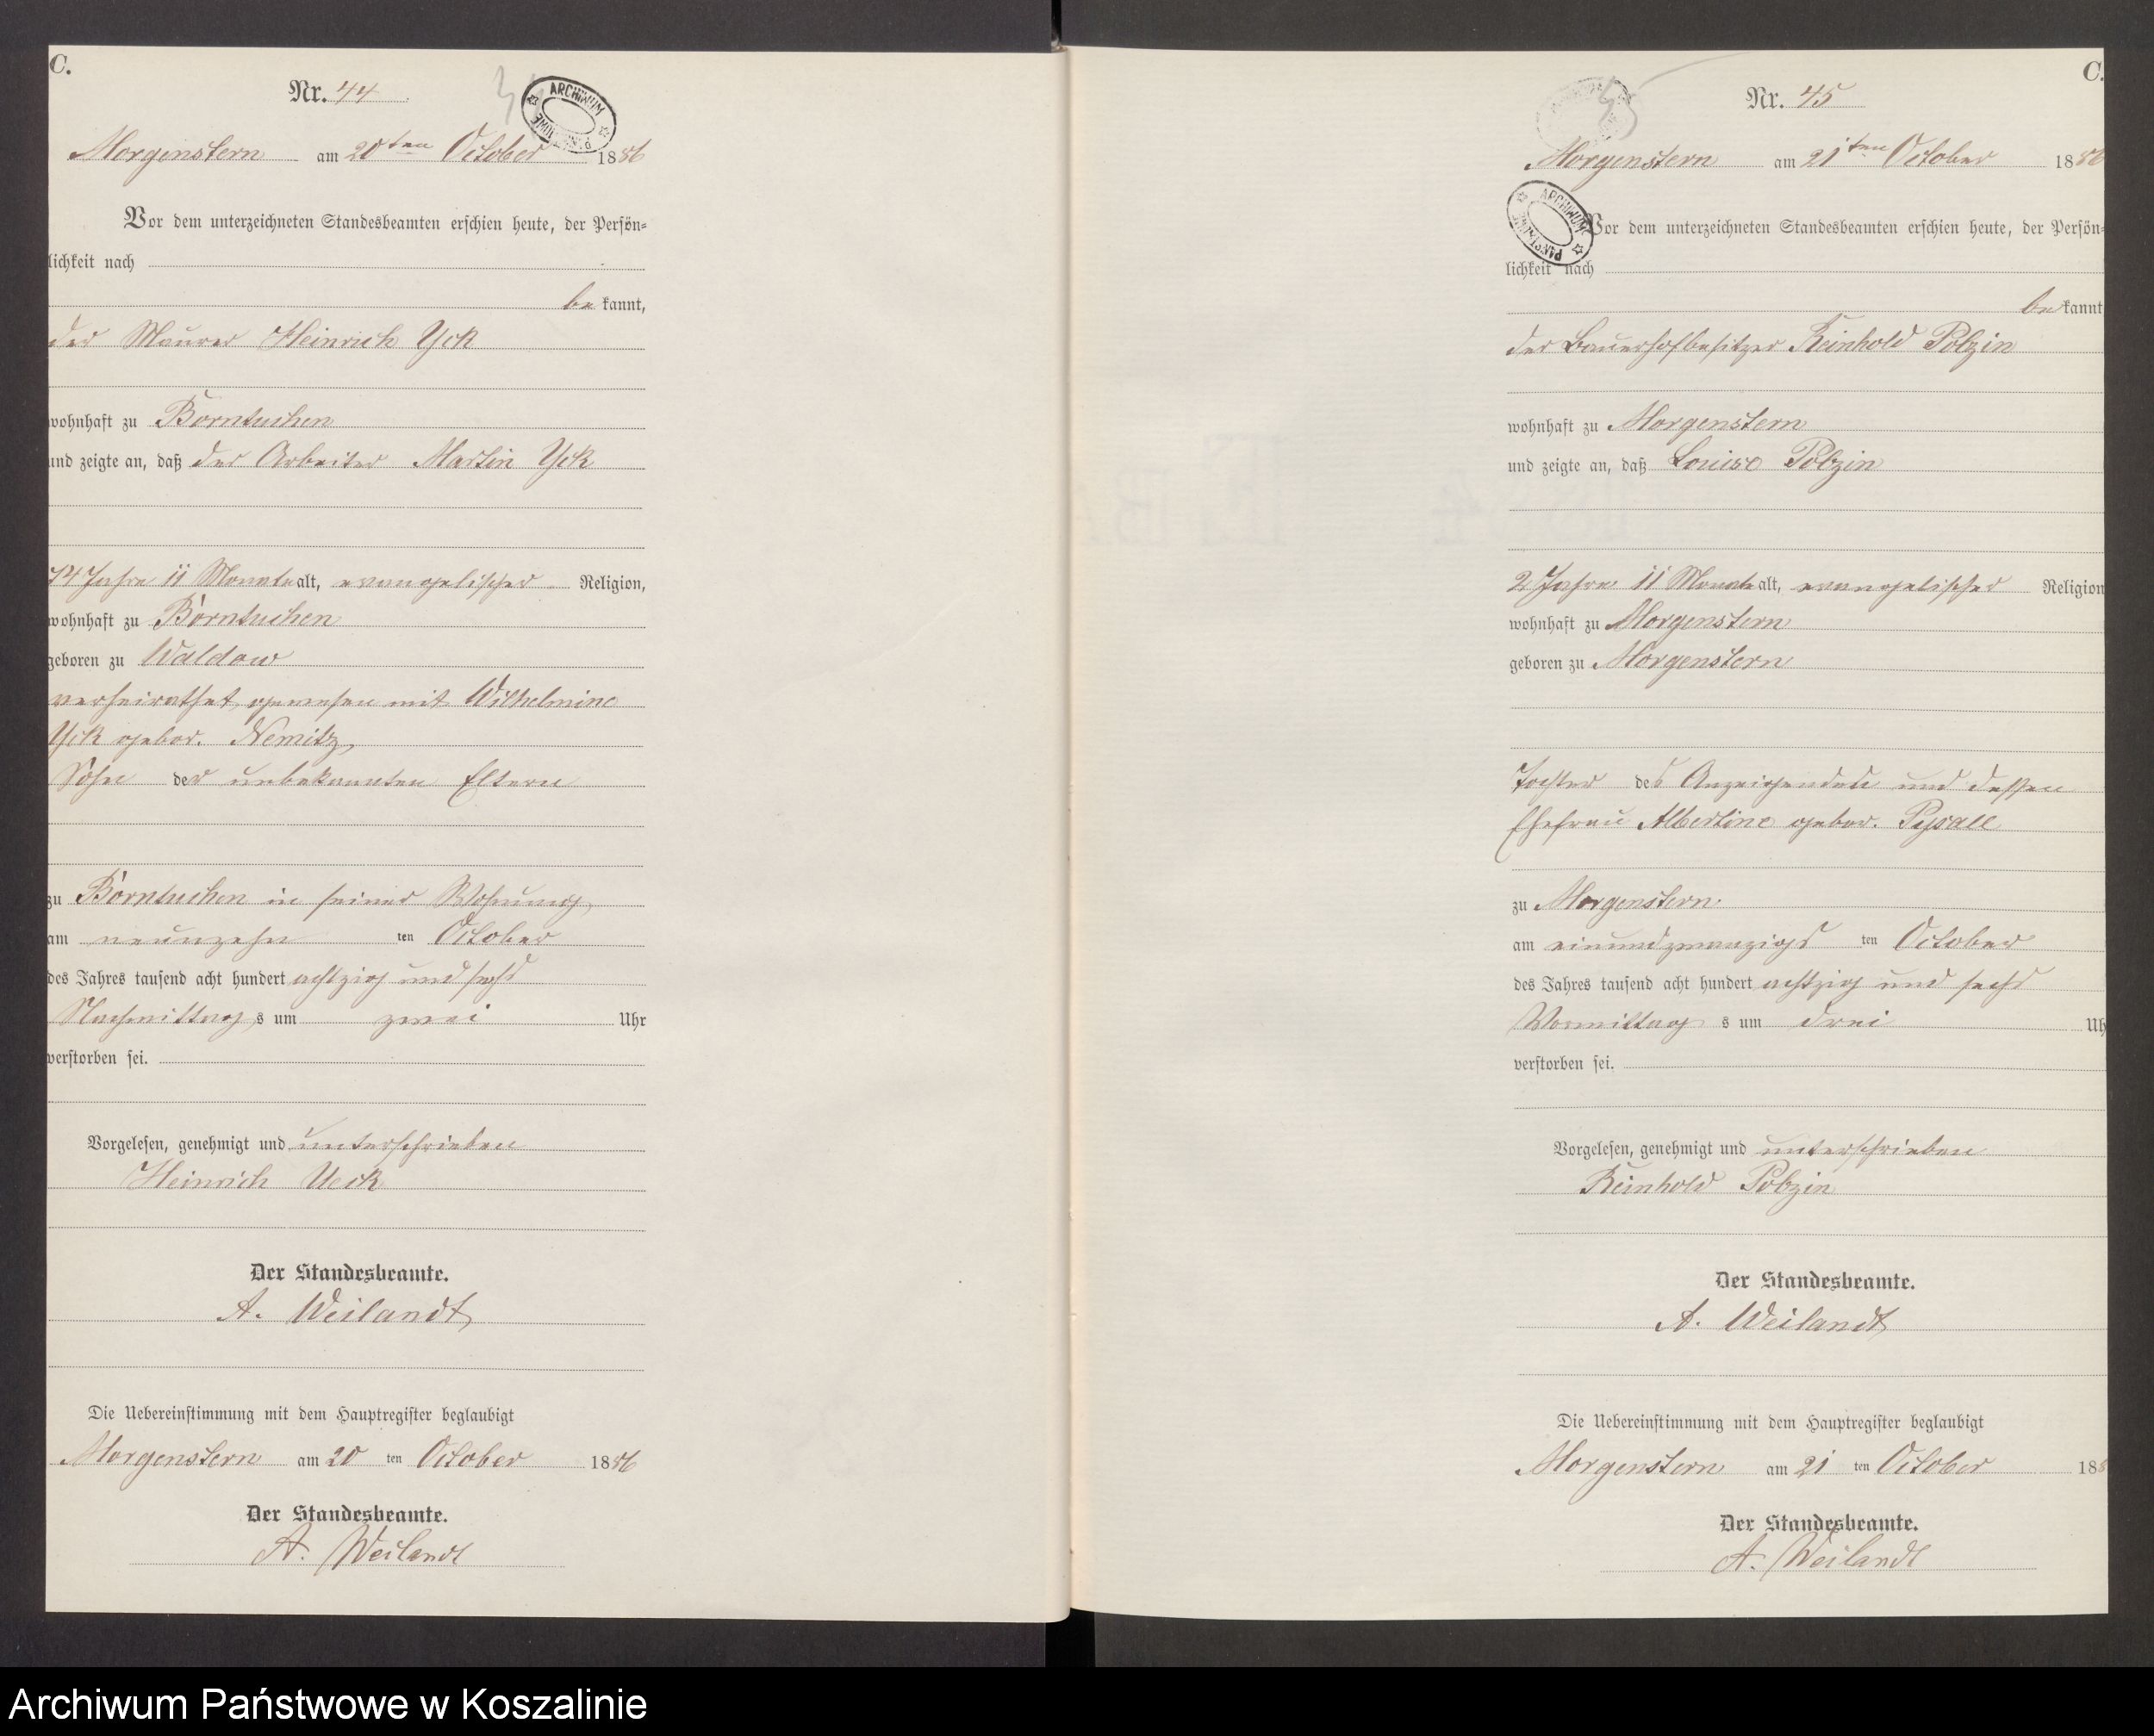 C.
Nr. 44
ARCHIWUM
Morgenstern am 20ten October 1886
Vor dem unterzeichneten Standesbeamten erschien heute, der Persön-
lichkeit nach
be kannt,
der Maurer Heinrich Yck
wohnhaft zu Borntuchen
und zeigte an, daß der Arbeiter Martin Yck
74 Jahre 11 Monate alt, evangelischer Religion,
wohnhaft zu Borntuchen
geboren zu Waldow
verheirathet gewesen mit Wilhelmine
Yck gebor. Nemitz,
Sohn der unbekannten Eltern
zu Borntuchen in seiner Wohnung,
am neunzehn ten October
des Jahres tausend acht hundert achtzig und sechs
Nachmittags um zwei Uhr
verstorben sei.
Vorgelesen, genehmigt und unterschrieben
Heinrich Ueck
Der Standesbeamte.
A. Weilandt
Die Uebereinstimmung mit dem Hauptregister beglaubigt
Morgenstern am 20 ten October 1886
Der Standesbeamte.
A. Weilandt
C.
Nr. 45
Morgenstern am 21ten October 1886
ARCHIWUM
Vor dem unterzeichneten Standesbeamten erschien heute, der Persön-
lichkeit nach
be kannt
der Bauerhofbesitzer Reinhold Polzin
wohnhaft zu Morgenstern
und zeigte an, daß Louise Polzin
2 Jahre 11 Monate alt, evangelischer Religion
wohnhaft zu Morgenstern
geboren zu Morgenstern
Tochter des Anzeigenden und dessen
Ehefrau Albertine gebor. Pysall
zu Morgenstern
am einundzwanzigs ten October
des Jahres tausend acht hundert achtzig und sechs
Vormittags um drei Uh
verstorben sei.
Vorgelesen, genehmigt und unterschrieben
Reinhold Polzin
Der Standesbeamte.
A. Weilandt
Die Uebereinstimmung mit dem Hauptregister beglaubigt
Morgenstern am 21 ten October 188
Der Standesbeamte.
A. Weilandt
Archiwum Państwowe w Koszalinie